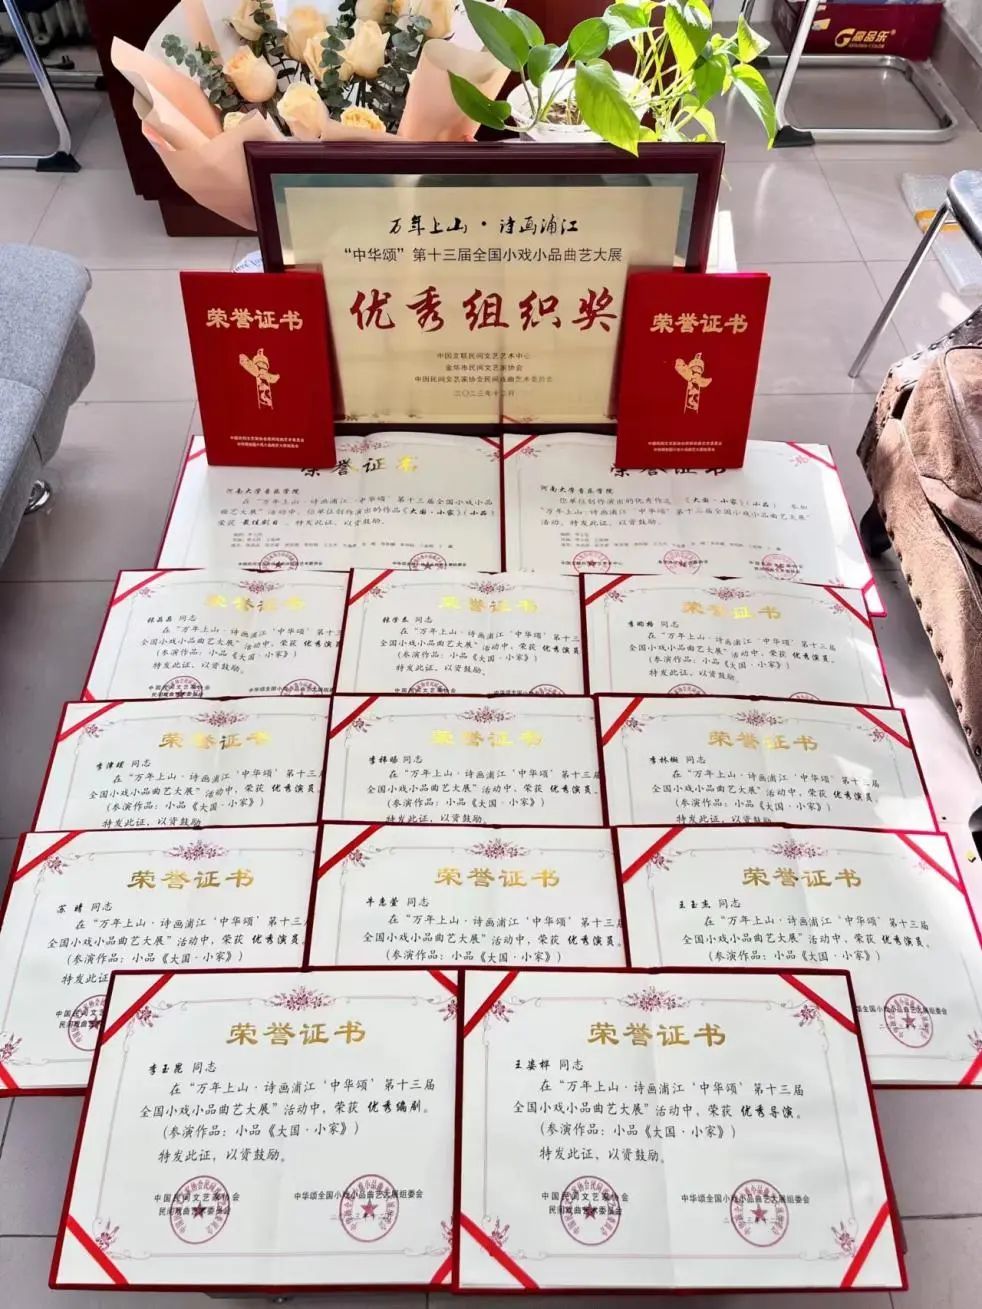 高品乐
万年上山·诗画浦江
“中华颂”第十三届全国小戏小品曲艺大展
优秀组织奖
中国文联民间文艺艺术中心
金华市民间文艺家协会
中国民间文艺家协会民间戏曲艺术委员会
二〇二三年十二月
荣誉证书
荣誉证书
荣誉证书
河南大学音乐学院
在“万年上山·诗画浦江‘中华颂’第十三届全国小戏小品
曲艺大展”活动中,你单位创作演出的作品《大国·小家》(小品)
荣获 最佳剧目 ,特发此证,以资鼓励。
荣誉证书
河南大学音乐学院
你单位创作演出的优秀作品《大国·小家》(小品) 参加
“万年上山·诗画浦江‘中华颂’第十三届全国小戏小品曲艺大展”
活动,特发此证,以资鼓励。
荣誉证书
同志
在“万年上山·诗画浦江‘中华颂’第十三
全国小戏小品曲艺大展”活动中,荣获 优秀演员
(参演作品:小品《大国·小家》)
特发此证,以资鼓励。
荣誉证书
同志
在“万年上山·诗画浦江‘中华颂’第十三
全国小戏小品曲艺大展”活动中,荣获 优秀演员
(参演作品:小品《大国·小家》)
特发此证,以资鼓励。
荣誉证书
同志
在“万年上山·诗画浦江‘中华颂’第十三届
全国小戏小品曲艺大展”活动中,荣获 优秀演员。
(参演作品:小品《大国·小家》)
特发此证,以资鼓励。
荣誉证书
同志
在“万年上山·诗画浦江‘中华颂’第十三届
全国小戏小品曲艺大展”活动中,荣获 优秀演员
(参演作品:小品《大国·小家》)
特发此证,以资鼓励。
荣誉证书
同志
在“万年上山·诗画浦江‘中华颂’第十三届
全国小戏小品曲艺大展”活动中,荣获 优秀演员。
(参演作品:小品《大国·小家》)
特发此证,以资鼓励。
荣誉证书
李林樾 同志
在“万年上山·诗画浦江‘中华颂’第十三届
全国小戏小品曲艺大展”活动中,荣获 优秀演员。
(参演作品:小品《大国·小家》)
特发此证,以资鼓励。
荣誉证书
苏晴 同志
在“万年上山·诗画浦江‘中华颂’第十三
全国小戏小品曲艺大展”活动中,荣获 优秀演员
(参演作品:小品《大国·小家》)
特发此证
荣誉证书
牛惠莹 同志
在“万年上山·诗画浦江‘中华颂’第十三届
全国小戏小品曲艺大展”活动中,荣获 优秀演员。
(参演作品:小品《大国·小家》)
荣誉证书
王玉杰 同志
在“万年上山·诗画浦江‘中华颂’第十三届
全国小戏小品曲艺大展”活动中,荣获 优秀演员。
(参演作品:小品《大国·小家》)
荣誉证书
李玉昆 同志
在“万年上山·诗画浦江‘中华颂’第十三届
全国小戏小品曲艺大展”活动中,荣获 优秀编剧。
(参演作品:小品《大国·小家》)
特发此证,以资鼓励。
中国民间文艺家协会
民间戏曲艺术委员会
中华颂全国小戏小品曲艺大展组委会
荣誉证书
王姿桦 同志
在“万年上山·诗画浦江‘中华颂’第十三届
全国小戏小品曲艺大展”活动中,荣获 优秀导演。
(参演作品:小品《大国·小家》)
特发此证,以资鼓励。
中国民间文艺家协会
民间戏曲艺术委员会
中华颂全国小戏小品曲艺大展组委会